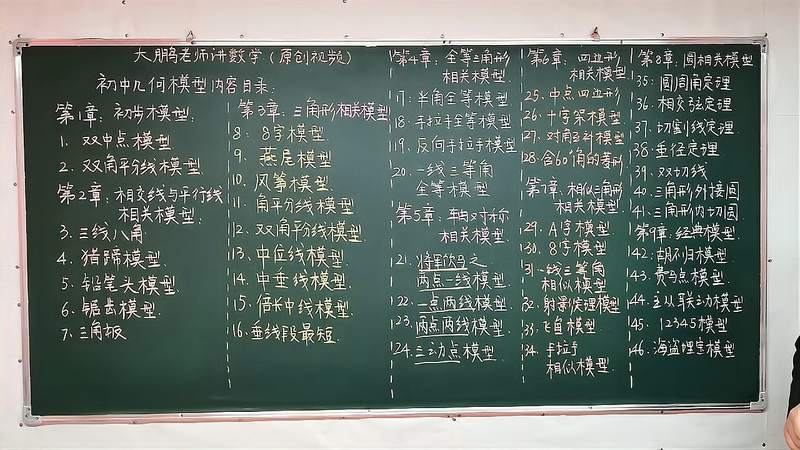 大鹏老师讲数学(原创视频)
初中几何模型内容目录:
第1章:初步模型
1. 双中点模型
2. 双角平分线模型
第2章:相交线与平行线
相关模型
3. 三线八角
4. 猪蹄模型
5. 铅笔头模型
6. 锯齿模型
7. 三角板
第3章:三角形相关模型
8. 8字模型
9. 燕尾模型
10. 风筝模型
11. 角平分线模型
12. 双角平分线模型
13. 中位线模型
14. 中垂线模型
15. 倍长中线模型
16. 垂线段最短
第4章:全等三角形
相关模型
17. 半角全等模型
18. 手拉手全等模型
19. 反向手拉手模型
20. 一线三等角
全等模型
第5章:轴对称
相关模型
21. 将军饮马之
两点一线模型
22. 一点两线模型
23. 两点两线模型
24. 三动点模型
第6章:四边形
相关模型
25. 中点四边形
26. 十字架模型
27. 对角互补模型
28. 含60°角的菱形
第7章:相似三角形
相关模型
29. A字模型
30. 8字模型
31. 一线三等角
相似模型
32. 射影定理模型
33. 飞鱼模型
34. 手拉手
相似模型
第8章:圆相关模型
35. 圆周角定理
36. 相交弦定理
37. 切割线定理
38. 垂径定理
39. 双切线
40. 三角形外接圆
41. 三角形内切圆
第9章:经典模型
42. 胡不归模型
43. 费马点模型
44. 主从联动模型
45. 12345模型
46. 海盗埋宝模型